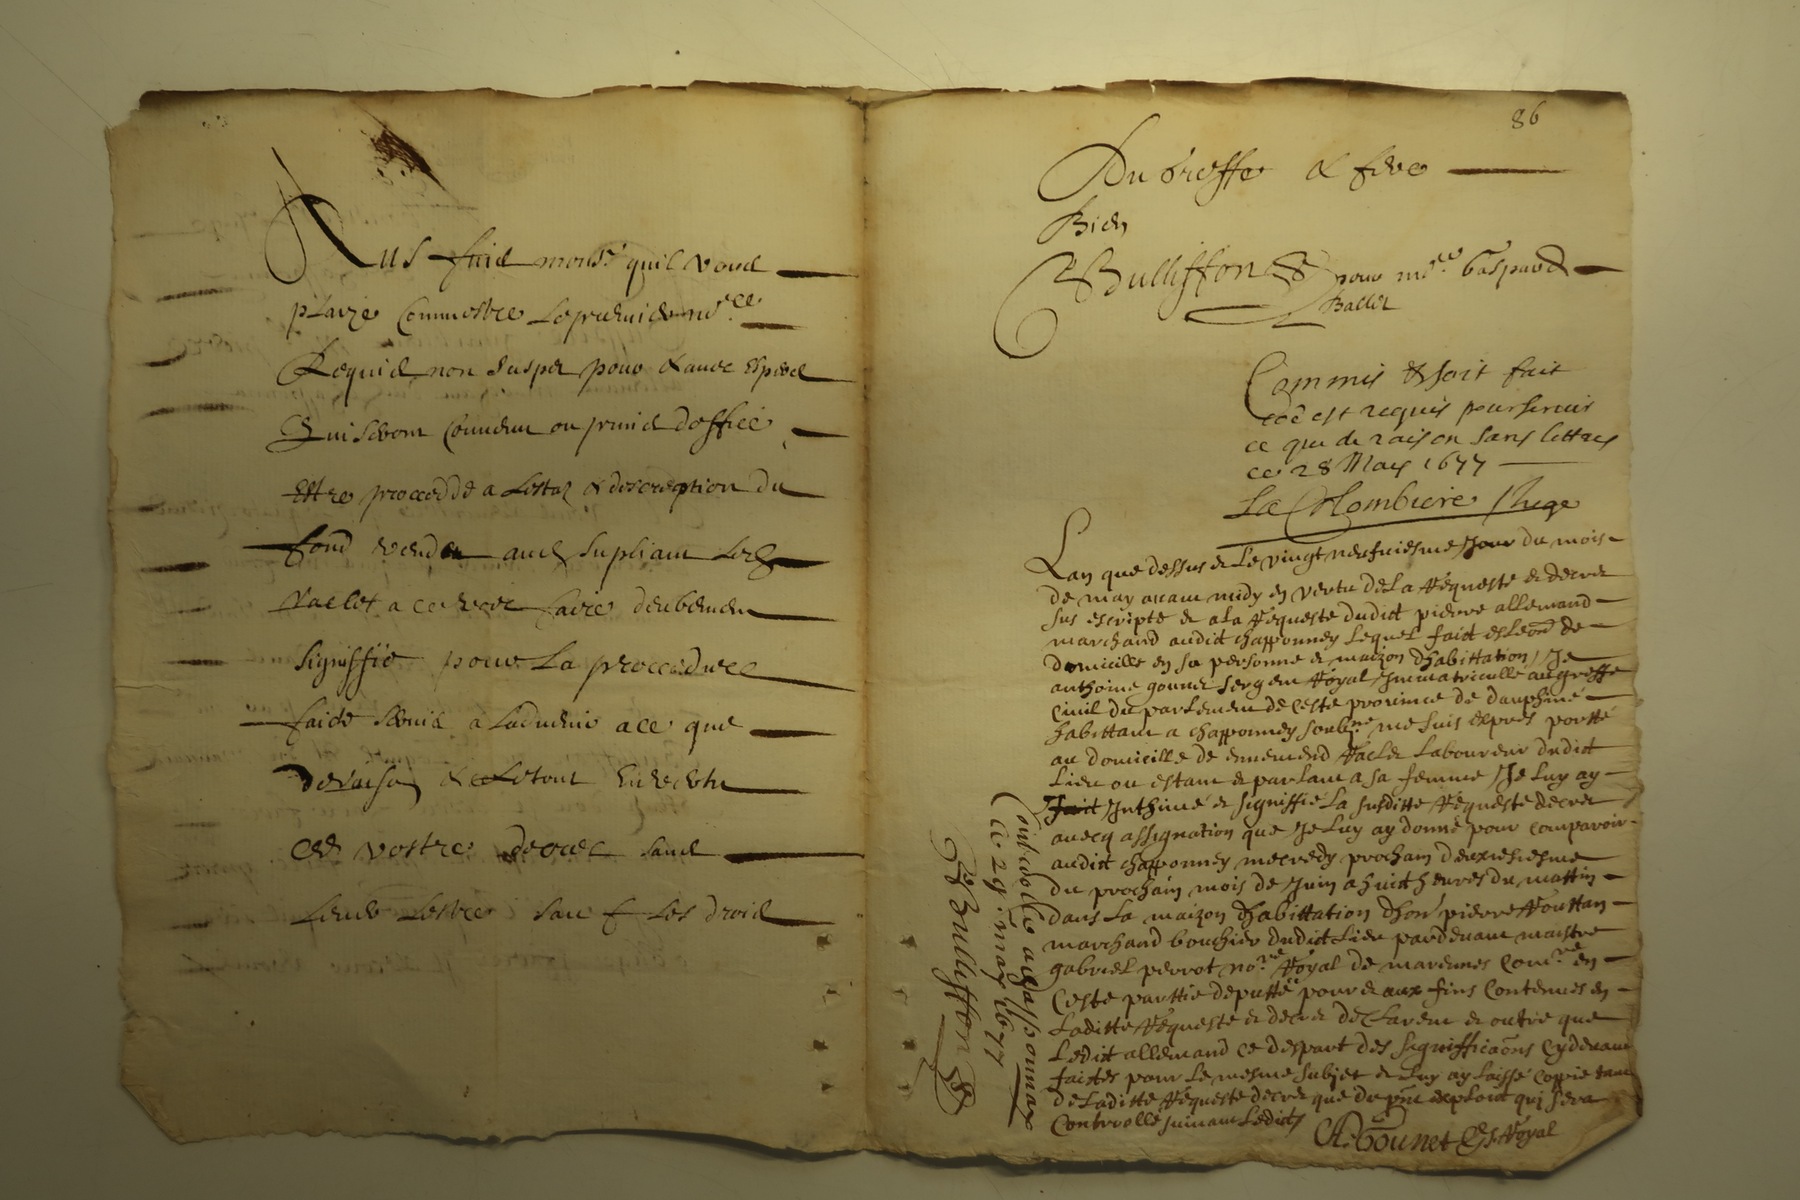 Plus faict monsr quil vous
plaize Commettre le premier mre
Requid non suspet pour & avec Expert
qui seront Convenu ou prins doffice
Estre proceddé a lestat & descreption du
fond vendu aud supliant led
Vaclet a ce veoir faire deubemen
signiffié pour la proceddure
faicte servir a ladvenir a ce que
de raison & du tout en vertu
de vostre decret sans
lettre sauf les droid
86
Du Greffe & fere
Bien
Bulliffon pour mre Gaspard
Ballet
Commis & soit fait
est requis pour servir
ce que de raison sans lettres
ce 28 May 1677
La Colombiere Juge
Lan que dessus & le vingt neufviesme Jour du mois
de may avant midy en vertu de la Requeste & decret
sus escripte & a la Requeste dudict pierre allemand
marchand audict chapponney lequel faict eslēon de
domicille en sa personne & maizon dhabittation, Je
anthoine gounet sergent Royal Immatriculle au greffe
civil du parlement de ceste province de dauphiné
habittant a chapponney soubne me suis expres portté
au domicille de ennemend Vaclet laboureur dudict
Lieu ou estant & parlant a sa femme Je luy ay
Inthimé & signiffié la susditte Requeste decret
avecq assignation que Je luy ay donné pour comparoir
audict chapponney mecredy prochain deuxiesme
du prochain mois de Juin a huict heures du mattin
dans la maizon dhabittation dhon pierre Routtan
marchand bouchier dudict lieu pardevant maistre
gabriel perrot nore Royal de marennes comre en
ceste parttie deputté pour & aux fins contenues en
laditte Requeste & decret declarent & outre que
ledict allemand ce despart des signifficaōns cydevant
faictes pour le mesme subjet & luy ay laissé coppie tant
de laditte Requeste decret que du pnt exploit qui sera
Controllé suivant ledict
A Gounet sgt Royal
Controllé a chapponnay
ce 29 may 1677
Bulliffon